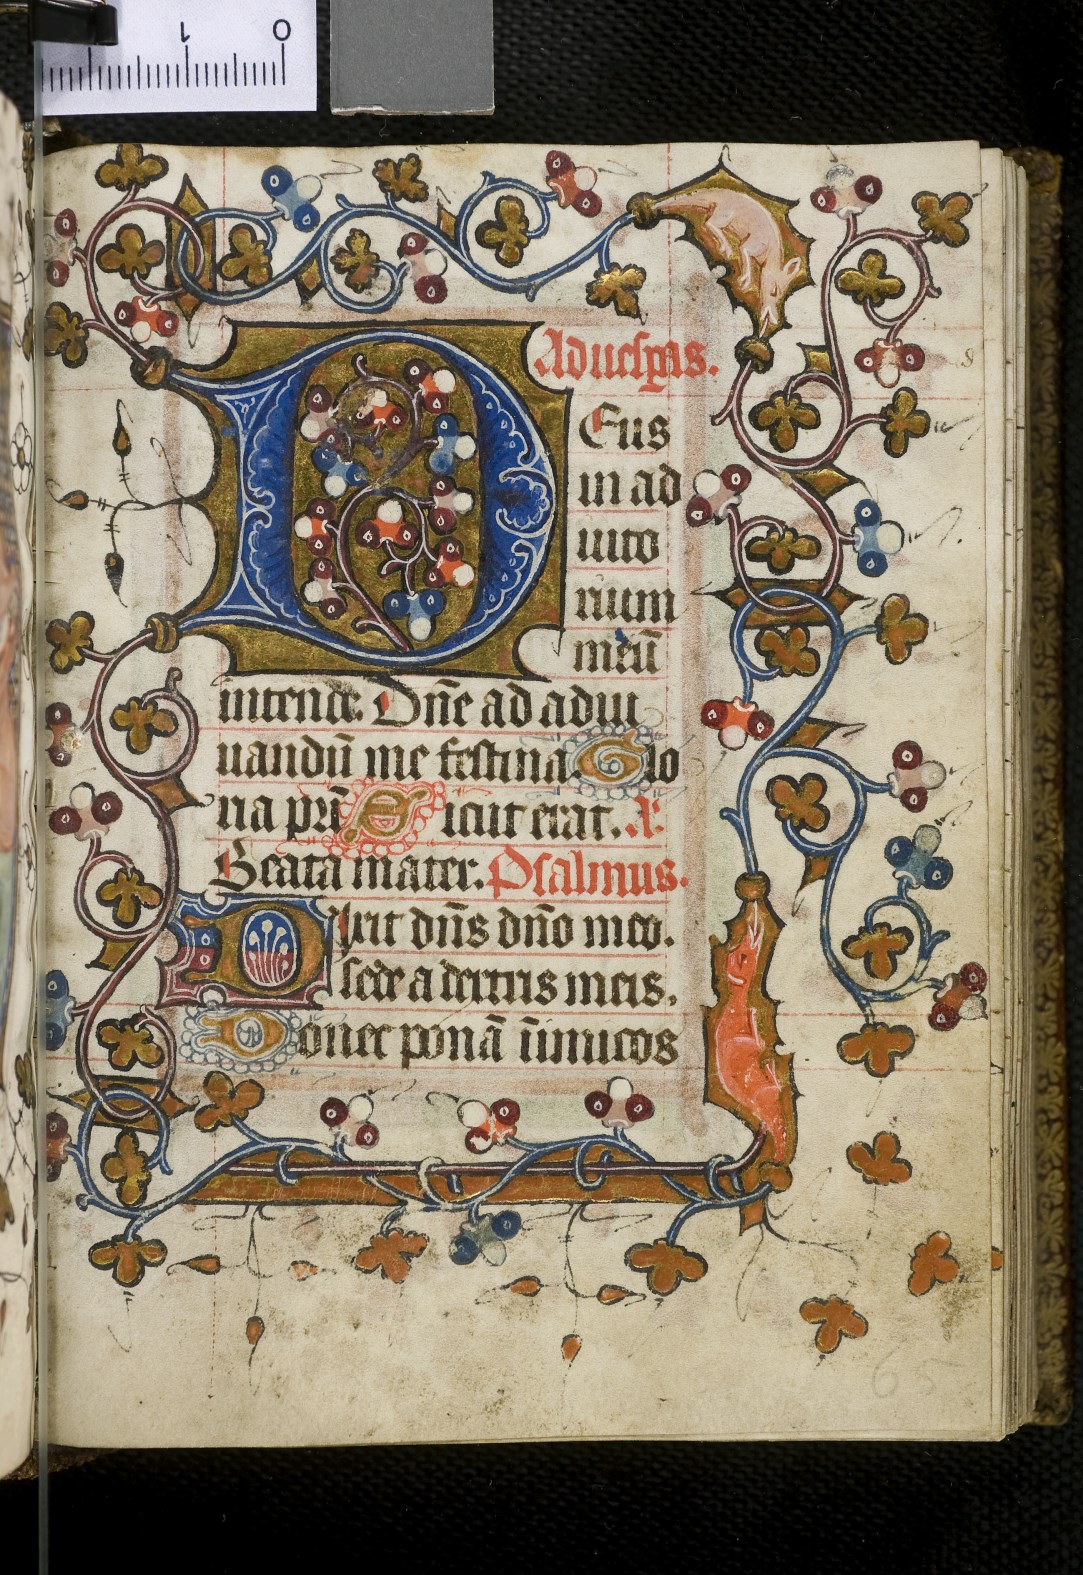 0 1
Ad uesp̄as.
DEus
in ad
iuto
rium
meū
intende. Dn̄e ad adiu
uandū me festina. Glo
ria pr̄i Sicut erat. A̅.
Beata mater. Psalmus.
Dixit dn̄s dn̄o meo.
sede a dextris meis.
Donec ponā inimicos
65